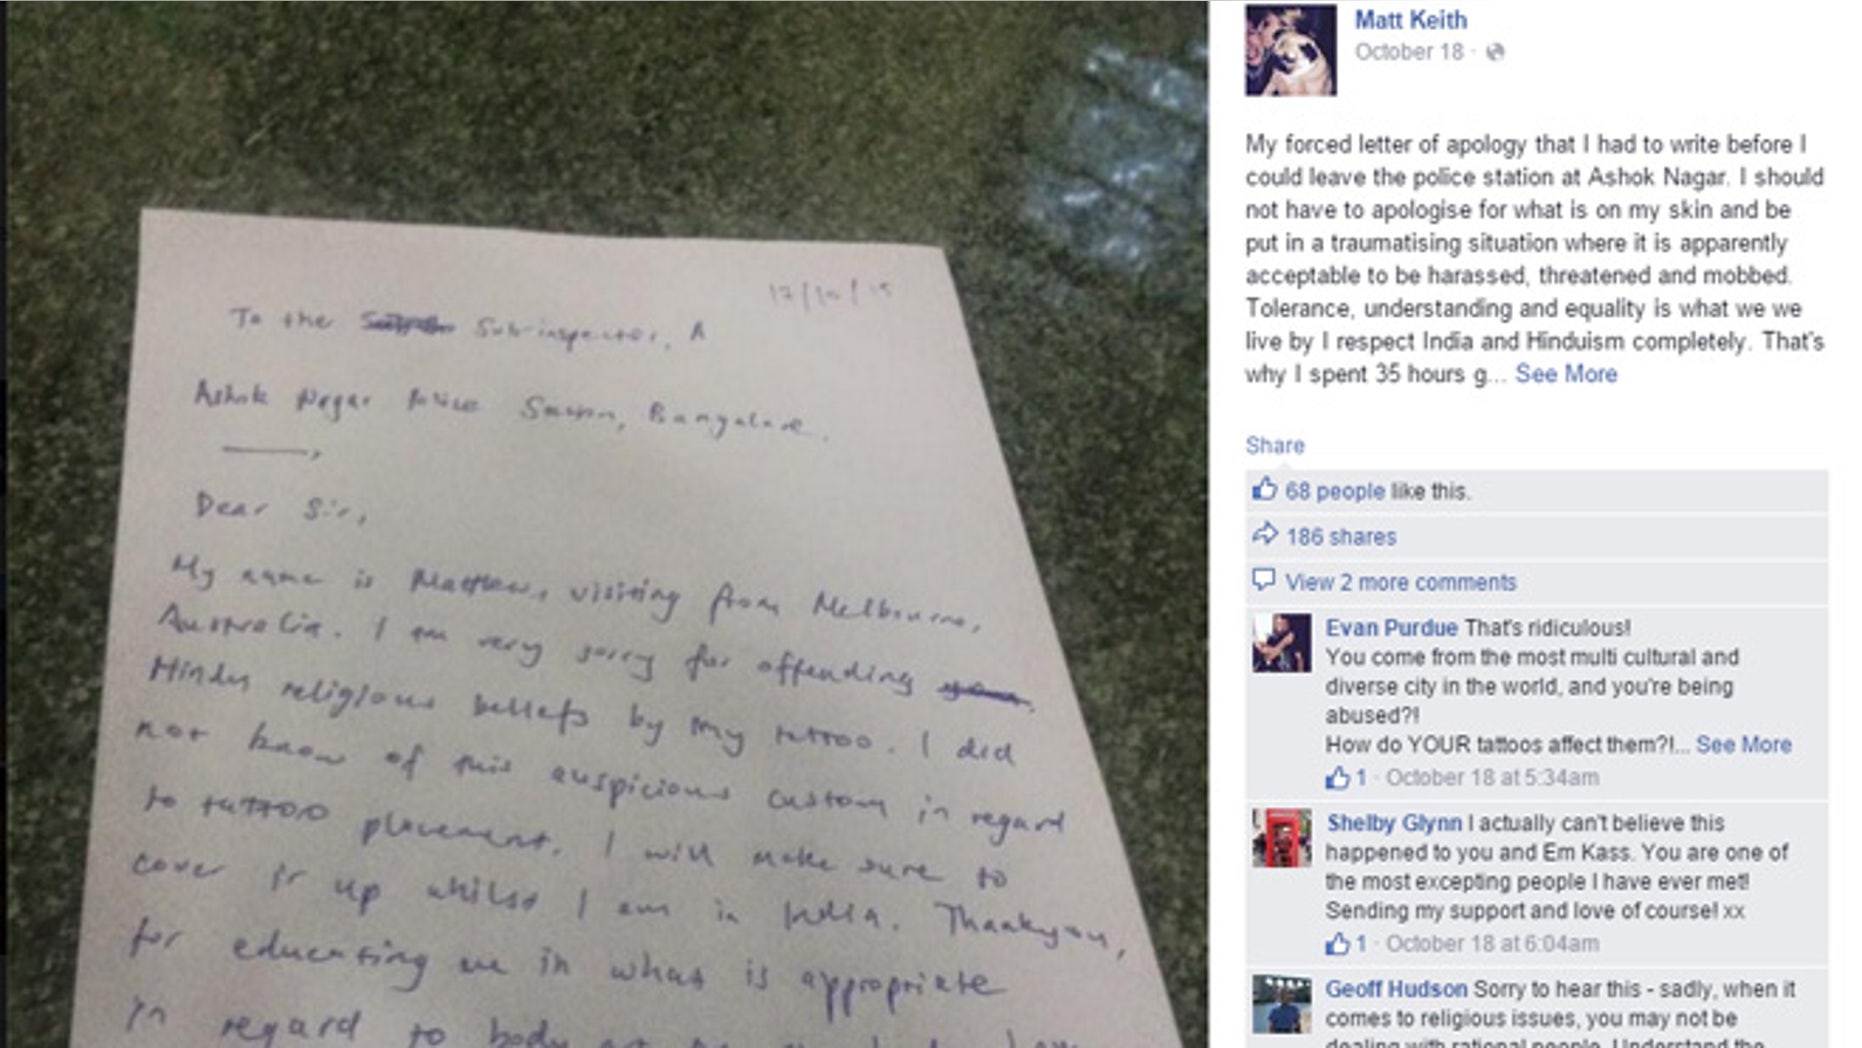 17/10/15
To the Sub-inspector, A
Ashok Nagar Police Station, Bangalore.
Dear Sir,
My name is Matthew, visiting from Melbourne,
Australia. I am very sorry for offending
Hindu religious beliefs by my tattoo. I did
not know of this auspicious custom in regard
to tattoo placement. I will make sure to
cover it up whilst I am in India. Thankyou,
for educating me in what is appropriate
in regard to body
Matt Keith
October 18 ·
My forced letter of apology that I had to write before I
could leave the police station at Ashok Nagar. I should
not have to apologise for what is on my skin and be
put in a traumatising situation where it is apparently
acceptable to be harassed, threatened and mobbed.
Tolerance, understanding and equality is what we we
live by I respect India and Hinduism completely. That's
why I spent 35 hours g... See More
Share
68 people like this.
186 shares
View 2 more comments
Evan Purdue That's ridiculous!
You come from the most multi cultural and
diverse city in the world, and you're being
abused?!
How do YOUR tattoos affect them?!... See More
1 · October 18 at 5:34am
Shelby Glynn I actually can't believe this
happened to you and Em Kass. You are one of
the most excepting people I have ever met!
Sending my support and love of course! xx
1 · October 18 at 6:04am
Geoff Hudson Sorry to hear this - sadly, when it
comes to religious issues, you may not be
dealing with rational people. Understand the